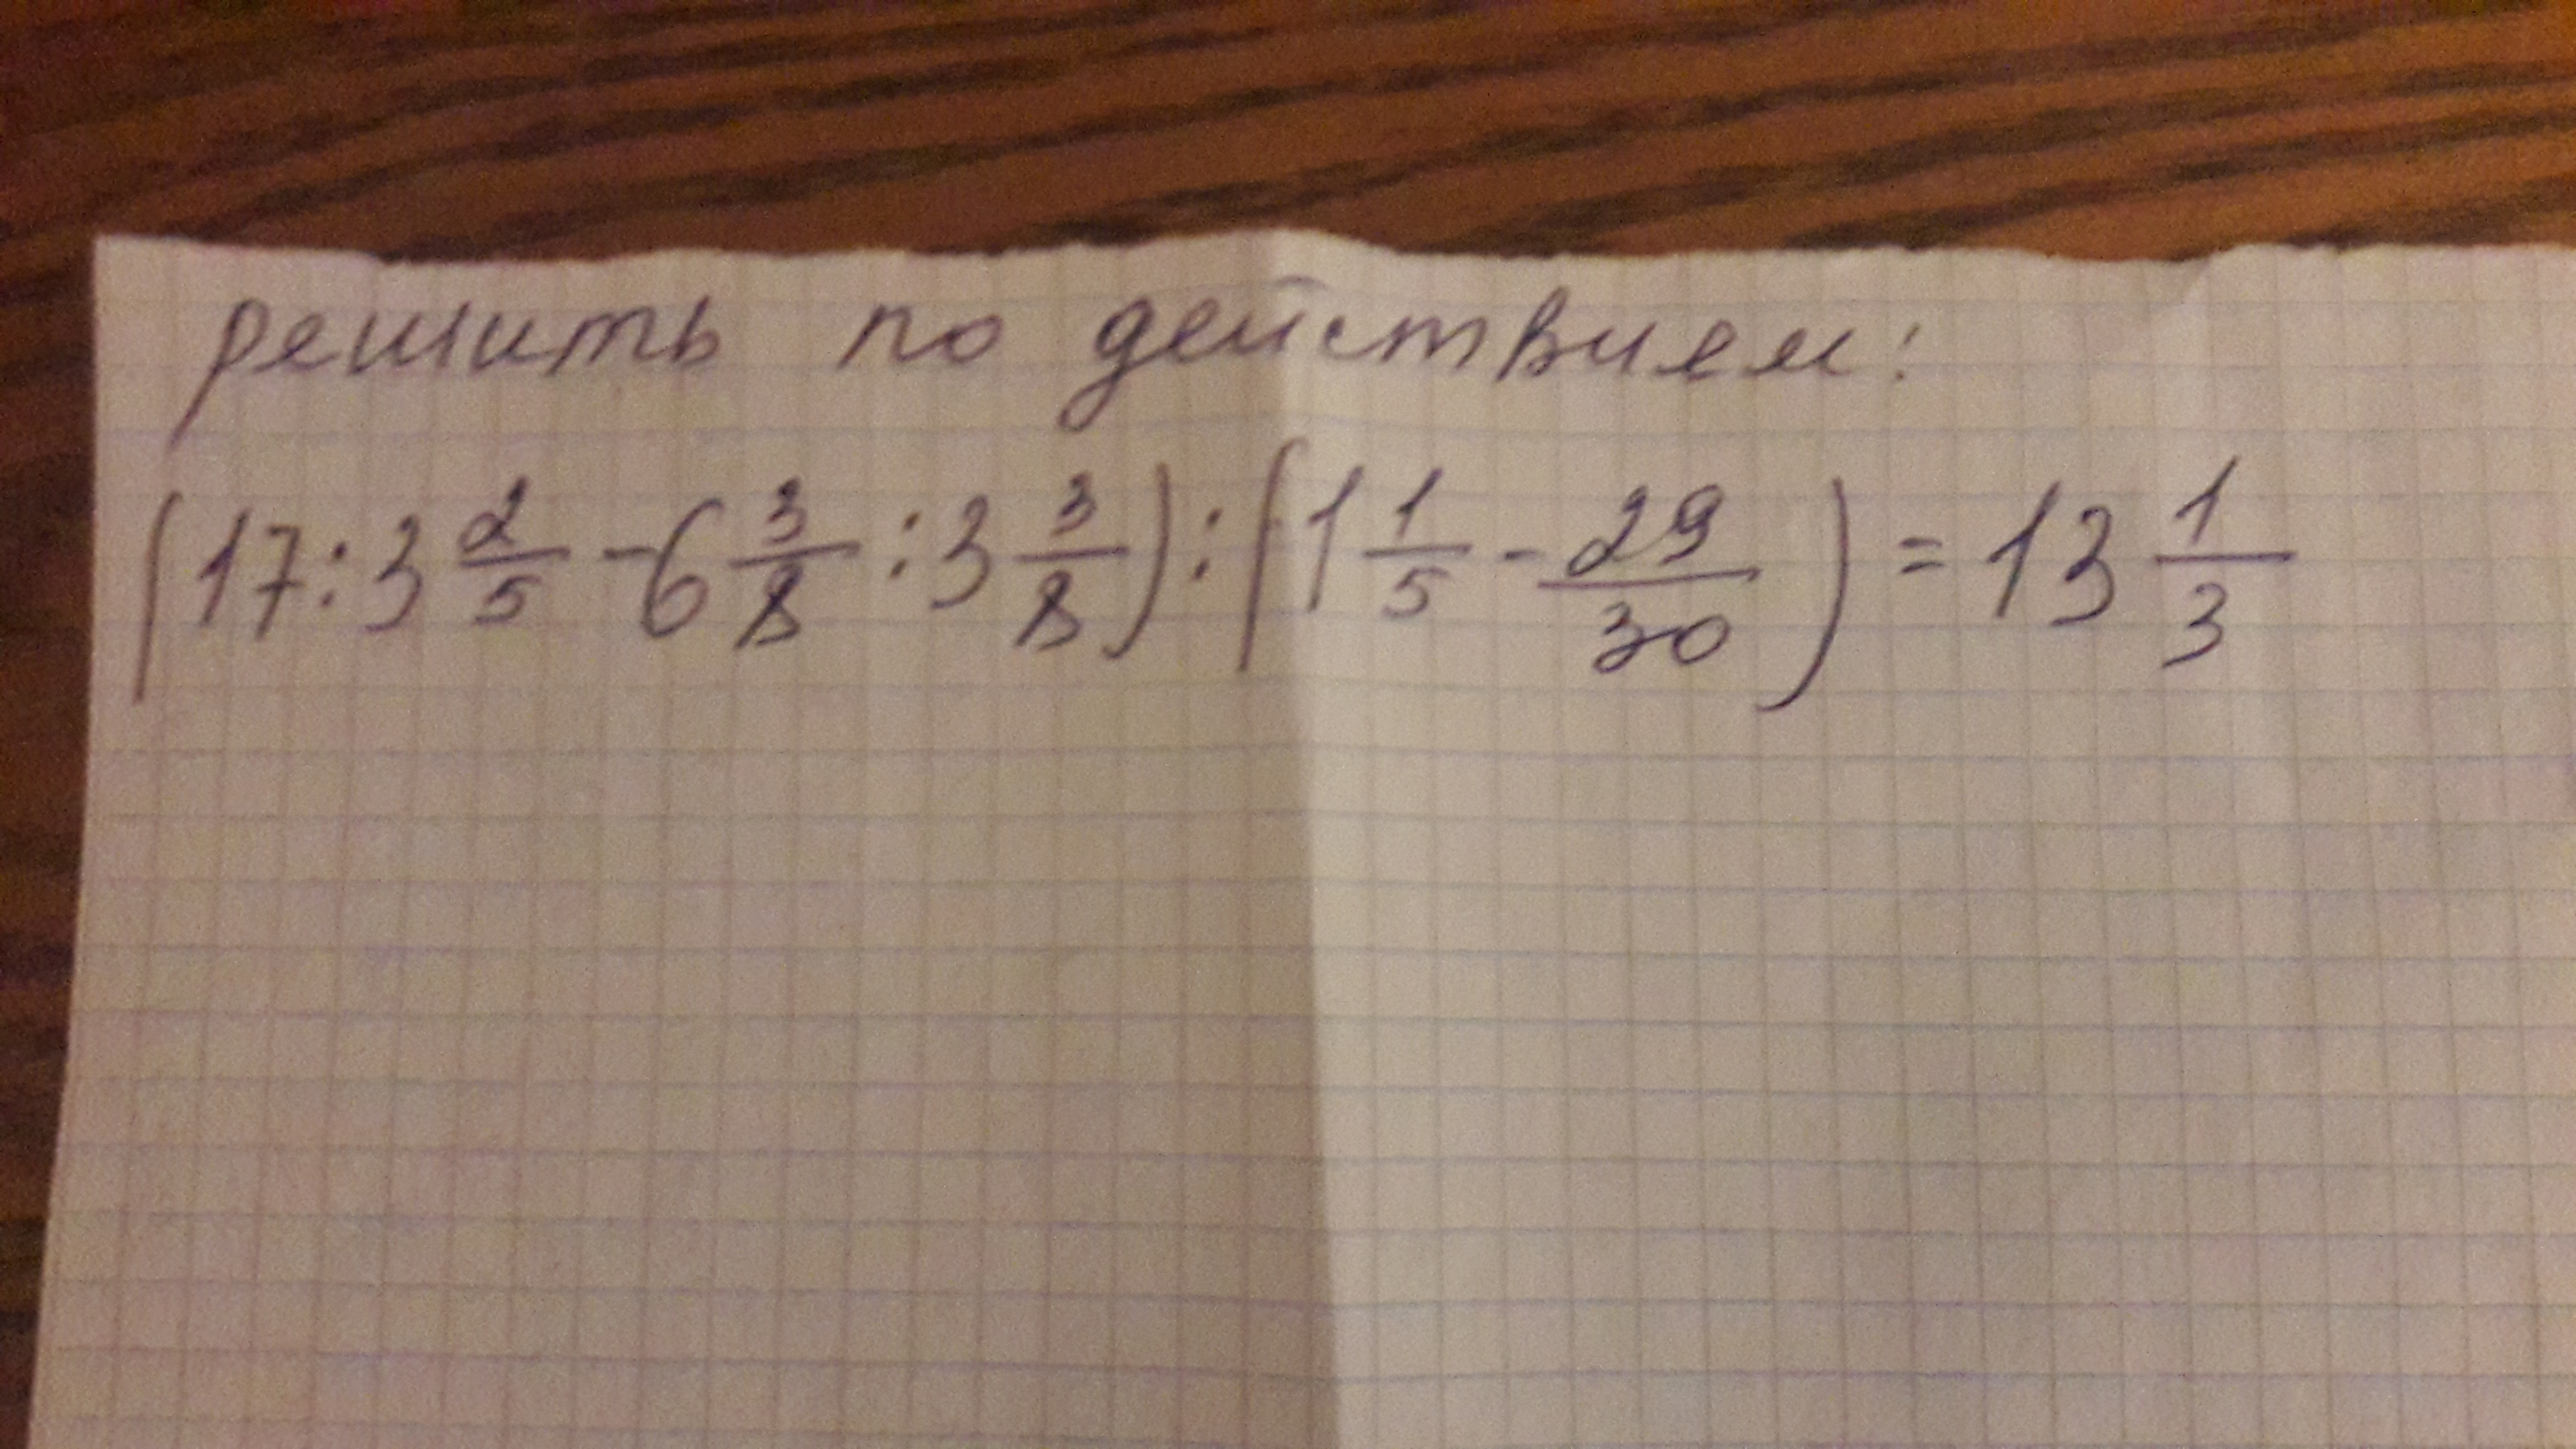 решить по действием:
(17:3 2/5 - 6 3/8 : 3 3/8) : (1 1/5 - 29/30) = 13 1/3